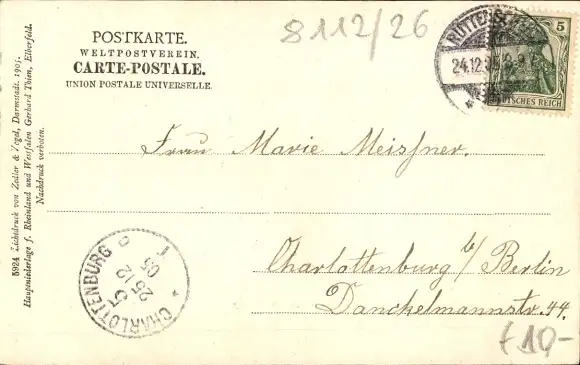 POSTKARTE.
WELTPOSTVEREIN.
CARTE-POSTALE.
UNION POSTALE UNIVERSELLE.
8112/26
24.12.
5
DEUTSCHES REICH
Frau Marie Meissner.
Charlottenburg b/Berlin
Danckelmannstr. 44.
CHARLOTTENBURG
5
25 12
05
f10-
5924 Lichtdruck von Zedler & Vogel, Darmstadt. 1905.
Hauptniederlage f. Rheinland und Westfalen Gerhard Thien, Elberfeld.
Nachdruck verboten.